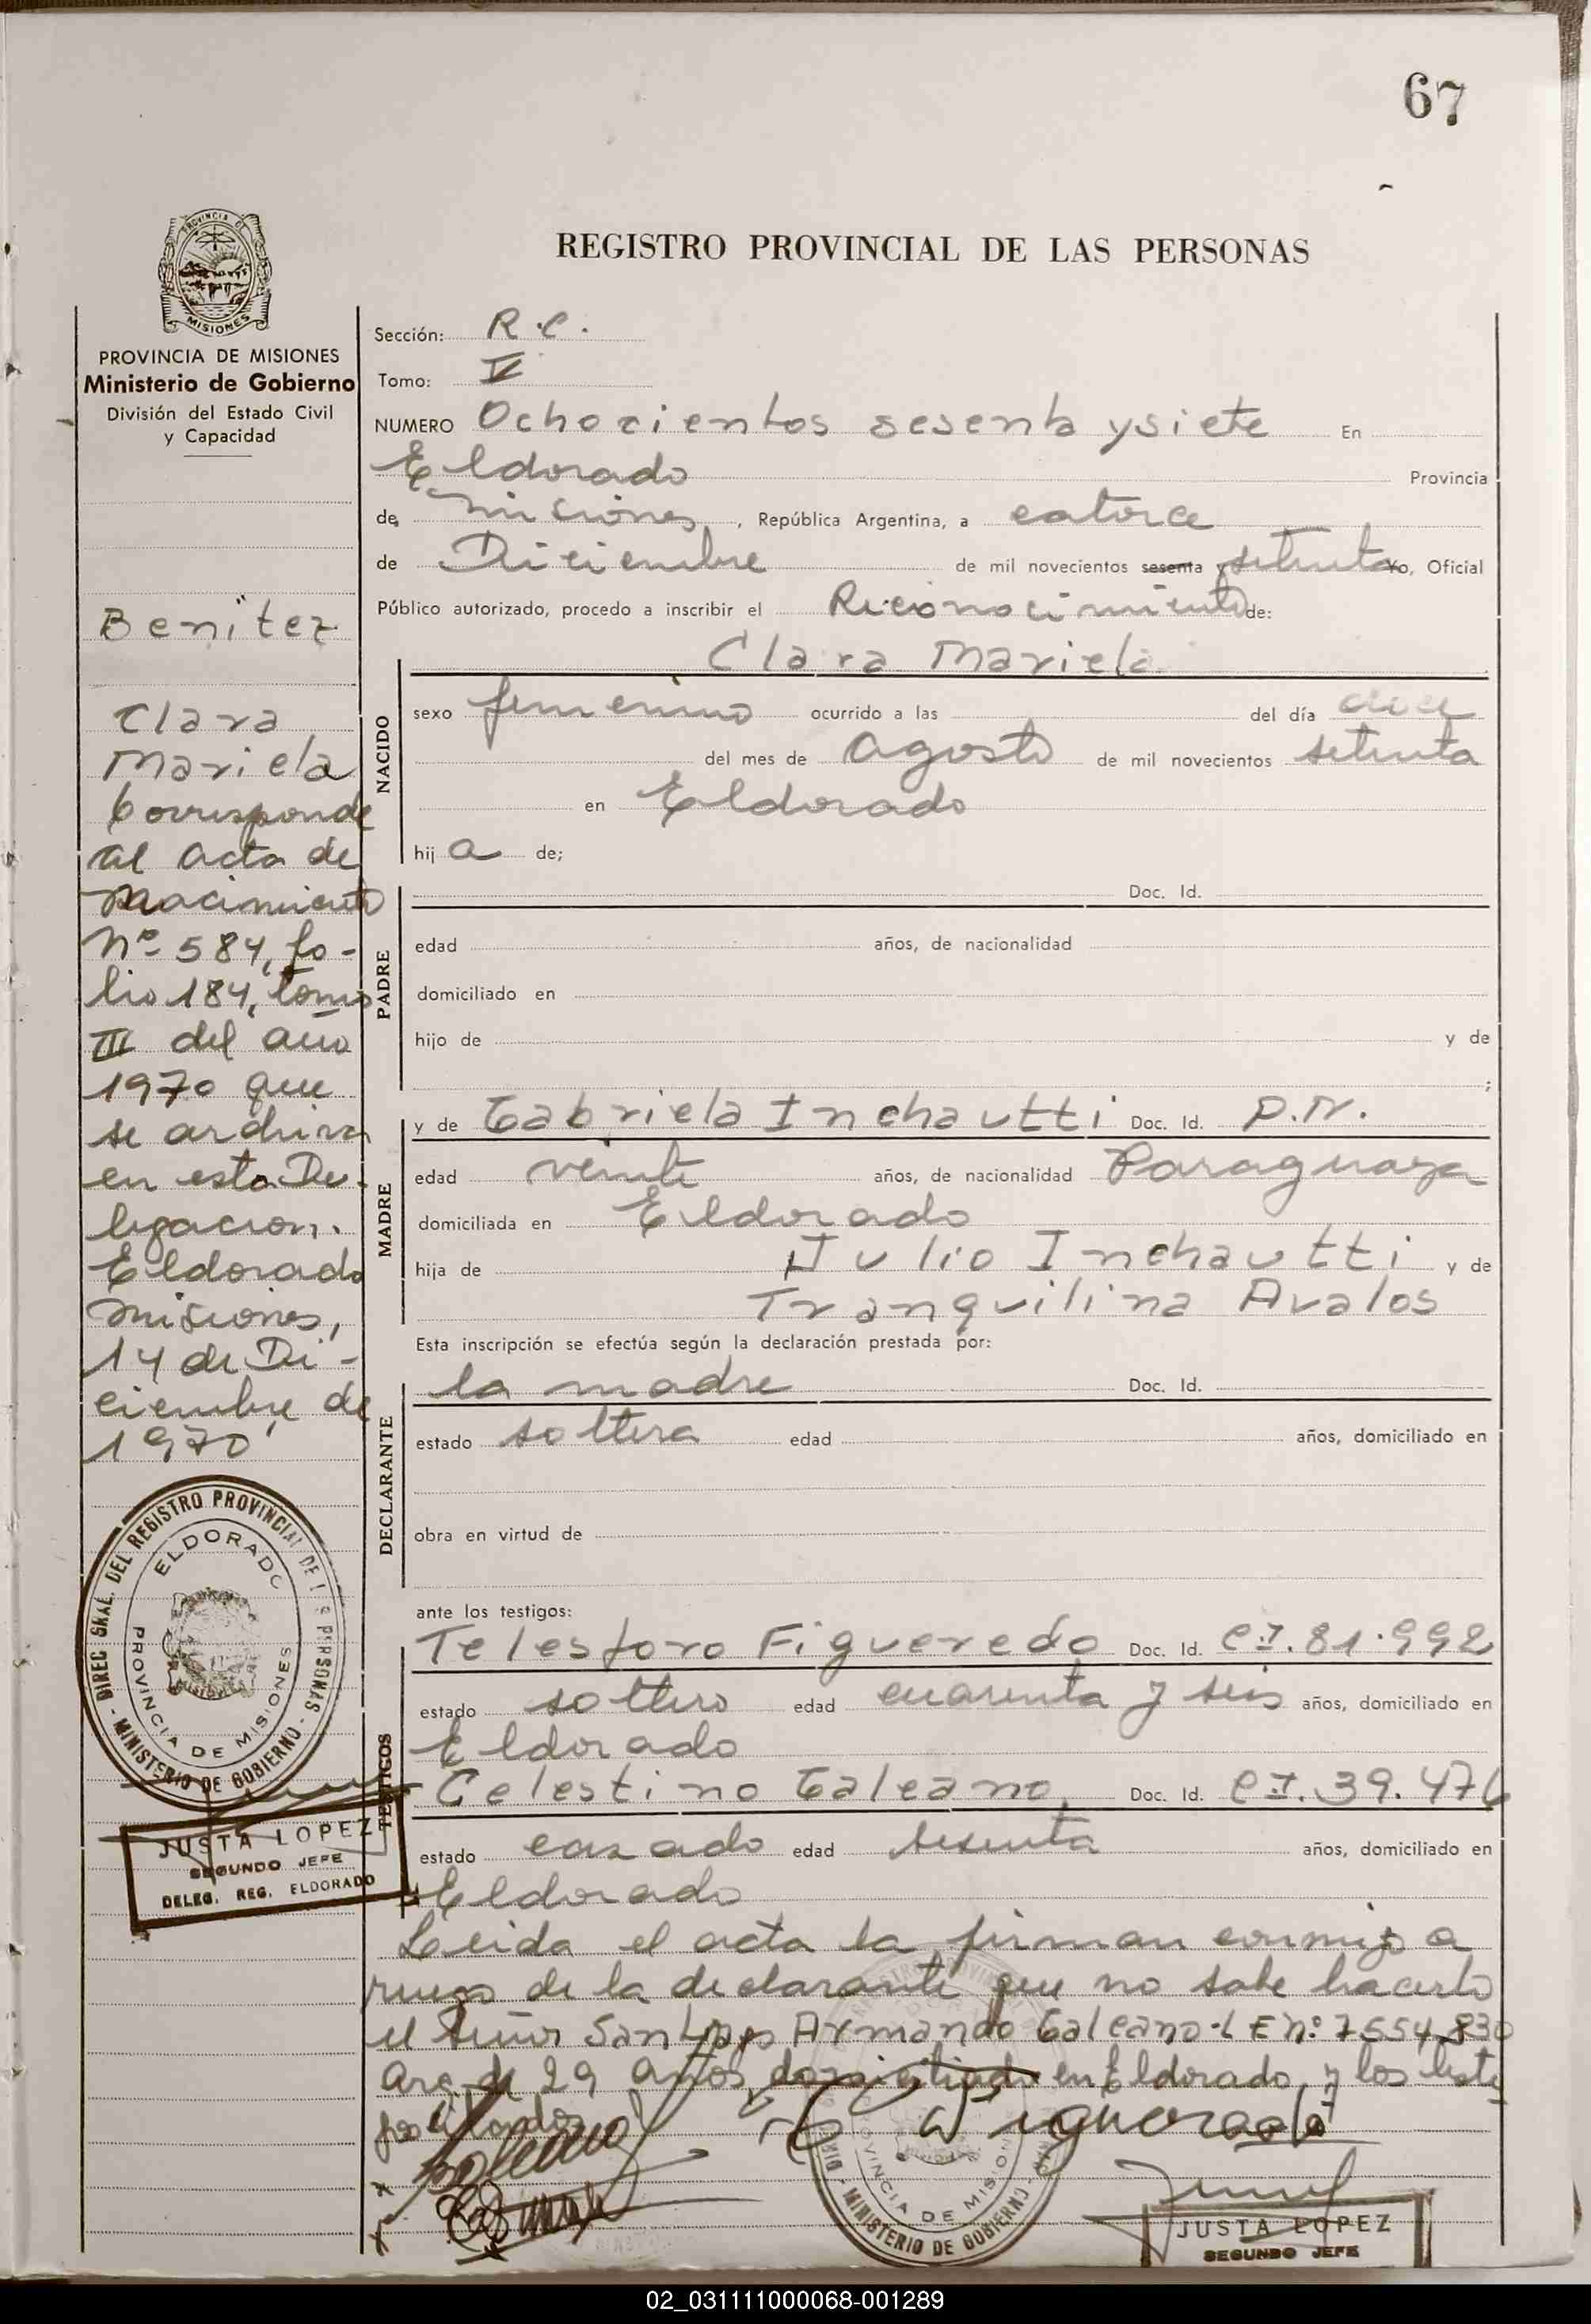 67
REGISTRO PROVINCIAL DE LAS PERSONAS
PROVINCIA DE MISIONES
Ministerio de Gobierno
División del Estado Civil
y Capacidad
Benitez
Clara
Mariela
Corresponde
al acta de
Nacimiento
Nº 584, fo-
lio 184, tomo
III del año
1970 que
se archiva
en esta De-
legacion.
Eldorado
Misiones,
14 de Di-
ciembre de
1970
DIREC GRAL. DEL REGISTRO PROVINCIAL DE LAS PERSONAS - MINISTERIO DE GOBIERNO -
ELDORADO
PROVINCIA DE MISIONES
JUSTA LOPEZ
SEGUNDO JEFE
DELEG. REG. ELDORADO
Sección: R.C.
Tomo: V
NUMERO Ochocientos sesenta y siete En
Eldorado Provincia
de Misiones, República Argentina, a catorce
de Diciembre de mil novecientos sesenta y setenta Yo, Oficial
Público autorizado, procedo a inscribir el Reconocimiento de:
Clara Mariela
NACIDO
sexo femenino ocurrido a las del día doce
del mes de Agosto de mil novecientos setenta
en Eldorado
hij a de;
PADRE
Doc. Id.
edad años, de nacionalidad
domiciliado en
hijo de y de
;
MADRE
y de Gabriela Inchautti Doc. Id. P.N.
edad veinte años, de nacionalidad Paraguaya
domiciliada en Eldorado
hija de Julio Inchautti y de
Tranquilina Avalos
Esta inscripción se efectúa según la declaración prestada por:
DECLARANTE
la madre Doc. Id.
estado soltera edad años, domiciliado en
obra en virtud de
ante los testigos:
TESTIGOS
Telesforo Figueredo Doc. Id. C.I. 81.992
estado soltero edad cuarenta y seis años, domiciliado en
Eldorado
Celestino Galeano, Doc. Id. C.I. 39.476
estado casado edad sesenta años, domiciliado en
Eldorado
Leida el acta la firman conmigo a
ruego de la declarante que no sabe hacerlo
el Señor Santiago Armando Galeano L E nº 7554.830
Arg. de 29 años, domiciliado en Eldorado, y los testi
MINISTERIO DE GOBIERNO
PROVINCIA DE MISIONES
JUSTA LOPEZ
SEGUNDO JEFE
02_031111000068-001289